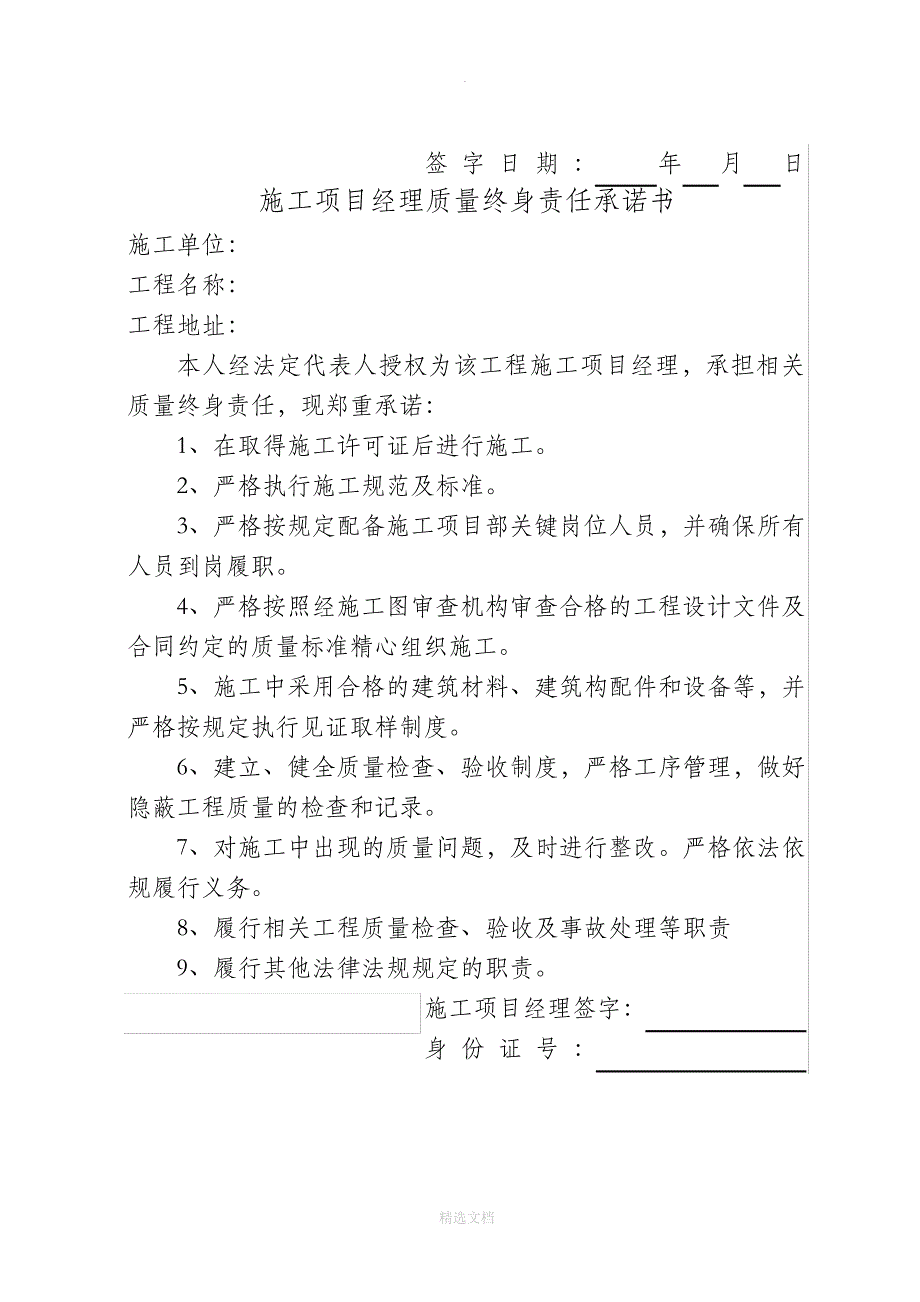 签字日期：    年  月  日
施工项目经理质量终身责任承诺书
施工单位：
工程名称：
工程地址：
本人经法定代表人授权为该工程施工项目经理，承担相关
质量终身责任，现郑重承诺：
1、在取得施工许可证后进行施工。
2、严格执行施工规范及标准。
3、严格按规定配备施工项目部关键岗位人员，并确保所有
人员到岗履职。
4、严格按照经施工图审查机构审查合格的工程设计文件及
合同约定的质量标准精心组织施工。
5、施工中采用合格的建筑材料、建筑构配件和设备等，并
严格按规定执行见证取样制度。
6、建立、健全质量检查、验收制度，严格工序管理，做好
隐蔽工程质量的检查和记录。
7、对施工中出现的质量问题，及时进行整改。严格依法依
规履行义务。
8、履行相关工程质量检查、验收及事故处理等职责
9、履行其他法律法规规定的职责。
施工项目经理签字：
身份证号：
精选文档